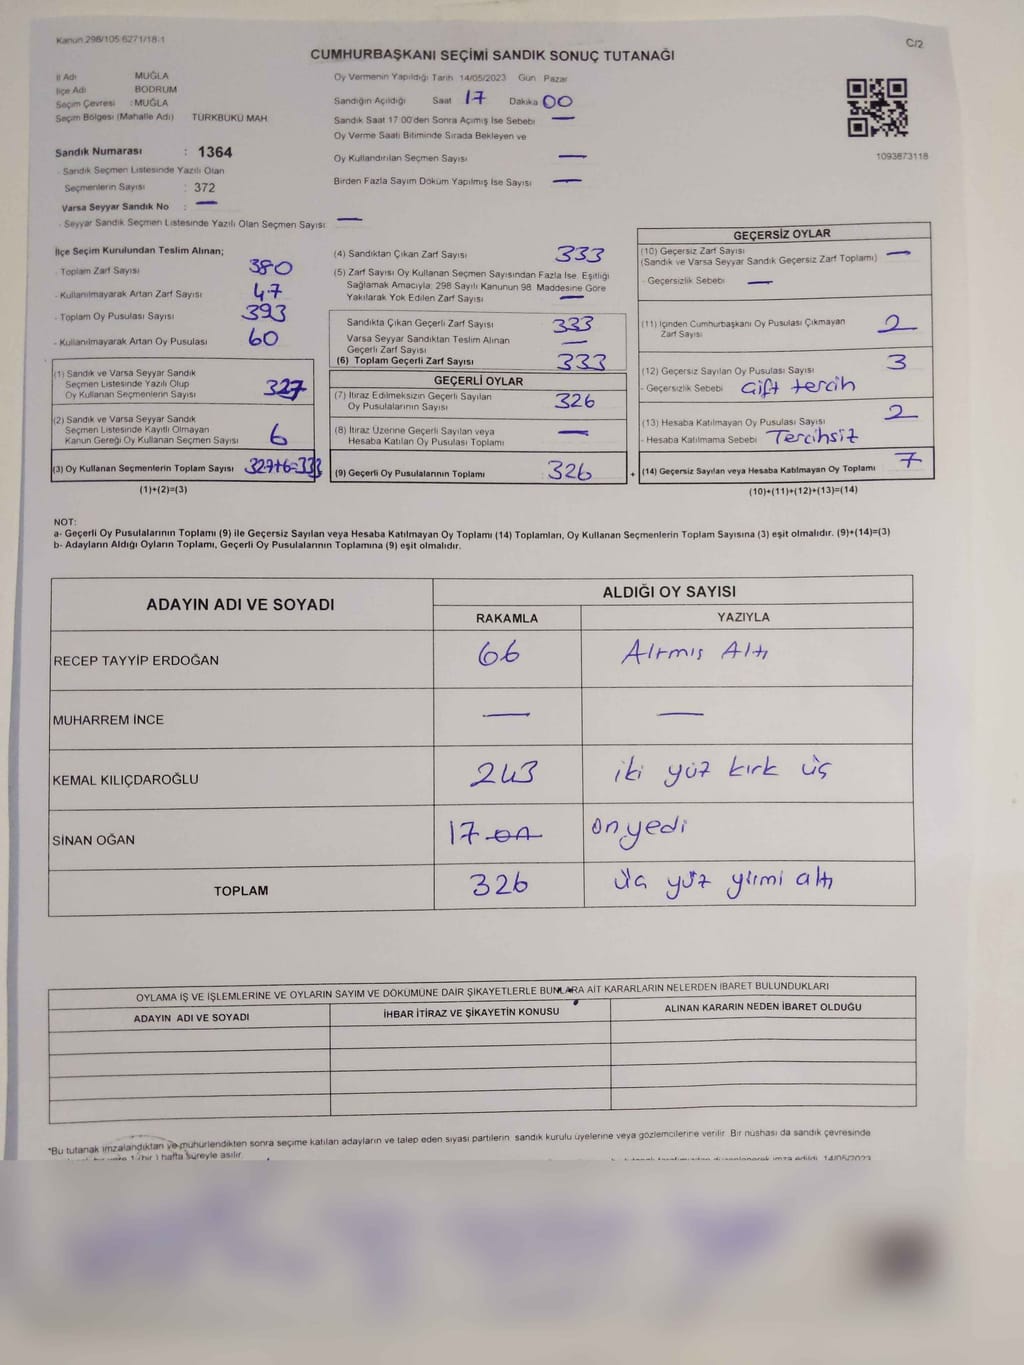 Kanun 298/105 6271/18-1
C/2
CUMHURBAŞKANI SEÇİMİ SANDIK SONUÇ TUTANAĞI
İl Adı MUĞLA
İlçe Adı BODRUM
Seçim Çevresi : MUĞLA
Seçim Bölgesi (Mahalle Adı) TÜRKBÜKÜ MAH.
Sandık Numarası : 1364
- Sandık Seçmen Listesinde Yazılı Olan
Seçmenlerin Sayısı : 372
Varsa Seyyar Sandık No : —
- Seyyar Sandık Seçmen Listesinde Yazılı Olan Seçmen Sayısı: —
Oy Vermenin Yapıldığı Tarih 14/05/2023 Gün Pazar
Sandığın Açıldığı Saat 17 Dakika 00
Sandık Saat 17:00'den Sonra Açmış İse Sebebi —
Oy Verme Saati Bitiminde Sırada Bekleyen ve
Oy Kullandırılan Seçmen Sayısı —
Birden Fazla Sayım Döküm Yapılmış İse Sayısı —
1093873118
İlçe Seçim Kurulundan Teslim Alınan;
- Toplam Zarf Sayısı 380
- Kullanılmayarak Artan Zarf Sayısı 47
- Toplam Oy Pusulası Sayısı 393
- Kullanılmayarak Artan Oy Pusulası 60
(1) Sandık ve Varsa Seyyar Sandık
Seçmen Listesinde Yazılı Olup
Oy Kullanan Seçmenlerin Sayısı 327
(2) Sandık ve Varsa Seyyar Sandık
Seçmen Listesinde Kayıtlı Olmayan
Kanun Gereği Oy Kullanan Seçmen Sayısı 6
(3) Oy Kullanan Seçmenlerin Toplam Sayısı 327+6=333
(1)+(2)=(3)
(4) Sandıktan Çıkan Zarf Sayısı 333
(5) Zarf Sayısı Oy Kullanan Seçmen Sayısından Fazla İse, Eşitliği
Sağlamak Amacıyla; 298 Sayılı Kanunun 98. Maddesine Göre
Yakılarak Yok Edilen Zarf Sayısı —
Sandıkta Çıkan Geçerli Zarf Sayısı 333
Varsa Seyyar Sandıktan Teslim Alınan
Geçerli Zarf Sayısı —
(6) Toplam Geçerli Zarf Sayısı 333
GEÇERLİ OYLAR
(7) İtiraz Edilmeksizin Geçerli Sayılan
Oy Pusulalarının Sayısı 326
(8) İtiraz Üzerine Geçerli Sayılan veya
Hesaba Katılan Oy Pusulası Toplamı —
(9) Geçerli Oy Pusulalarının Toplamı 326
+
GEÇERSİZ OYLAR
(10) Geçersiz Zarf Sayısı —
(Sandık ve Varsa Seyyar Sandık Geçersiz Zarf Toplamı)
- Geçersizlik Sebebi —
(11) İçinden Cumhurbaşkanı Oy Pusulası Çıkmayan
Zarf Sayısı 2
(12) Geçersiz Sayılan Oy Pusulası Sayısı 3
- Geçersizlik Sebebi Çift tercih
(13) Hesaba Katılmayan Oy Pusulası Sayısı 2
- Hesaba Katılmama Sebebi Tercihsiz
(14) Geçersiz Sayılan veya Hesaba Katılmayan Oy Toplamı 7
(10)+(11)+(12)+(13)=(14)
NOT:
a- Geçerli Oy Pusulalarının Toplamı (9) ile Geçersiz Sayılan veya Hesaba Katılmayan Oy Toplamı (14) Toplamları, Oy Kullanan Seçmenlerin Toplam Sayısına (3) eşit olmalıdır. (9)+(14)=(3)
b- Adayların Aldığı Oyların Toplamı, Geçerli Oy Pusulalarının Toplamına (9) eşit olmalıdır.
ADAYIN ADI VE SOYADI
ALDIĞI OY SAYISI
RAKAMLA YAZIYLA
RECEP TAYYİP ERDOĞAN 66 Altmış Altı
MUHARREM İNCE — —
KEMAL KILIÇDAROĞLU 243 iki yüz kırk üç
SİNAN OĞAN 17 on on yedi
TOPLAM 326 üç yüz yirmi altı
OYLAMA İŞ VE İŞLEMLERİNE VE OYLARIN SAYIM VE DÖKÜMÜNE DAİR ŞİKAYETLERLE BUNLARA AİT KARARLARIN NELERDEN İBARET BULUNDUKLARI
ADAYIN ADI VE SOYADI İHBAR İTİRAZ VE ŞİKAYETİN KONUSU ALINAN KARARIN NEDEN İBARET OLDUĞU
*Bu tutanak imzalandıktan ve mühürlendikten sonra seçime katılan adayların ve talep eden siyasi partilerin sandık kurulu üyelerine veya gözlemcilerine verilir. Bir nüshası da sandık çevresinde
hafta süreyle asılır. 14/05/2023